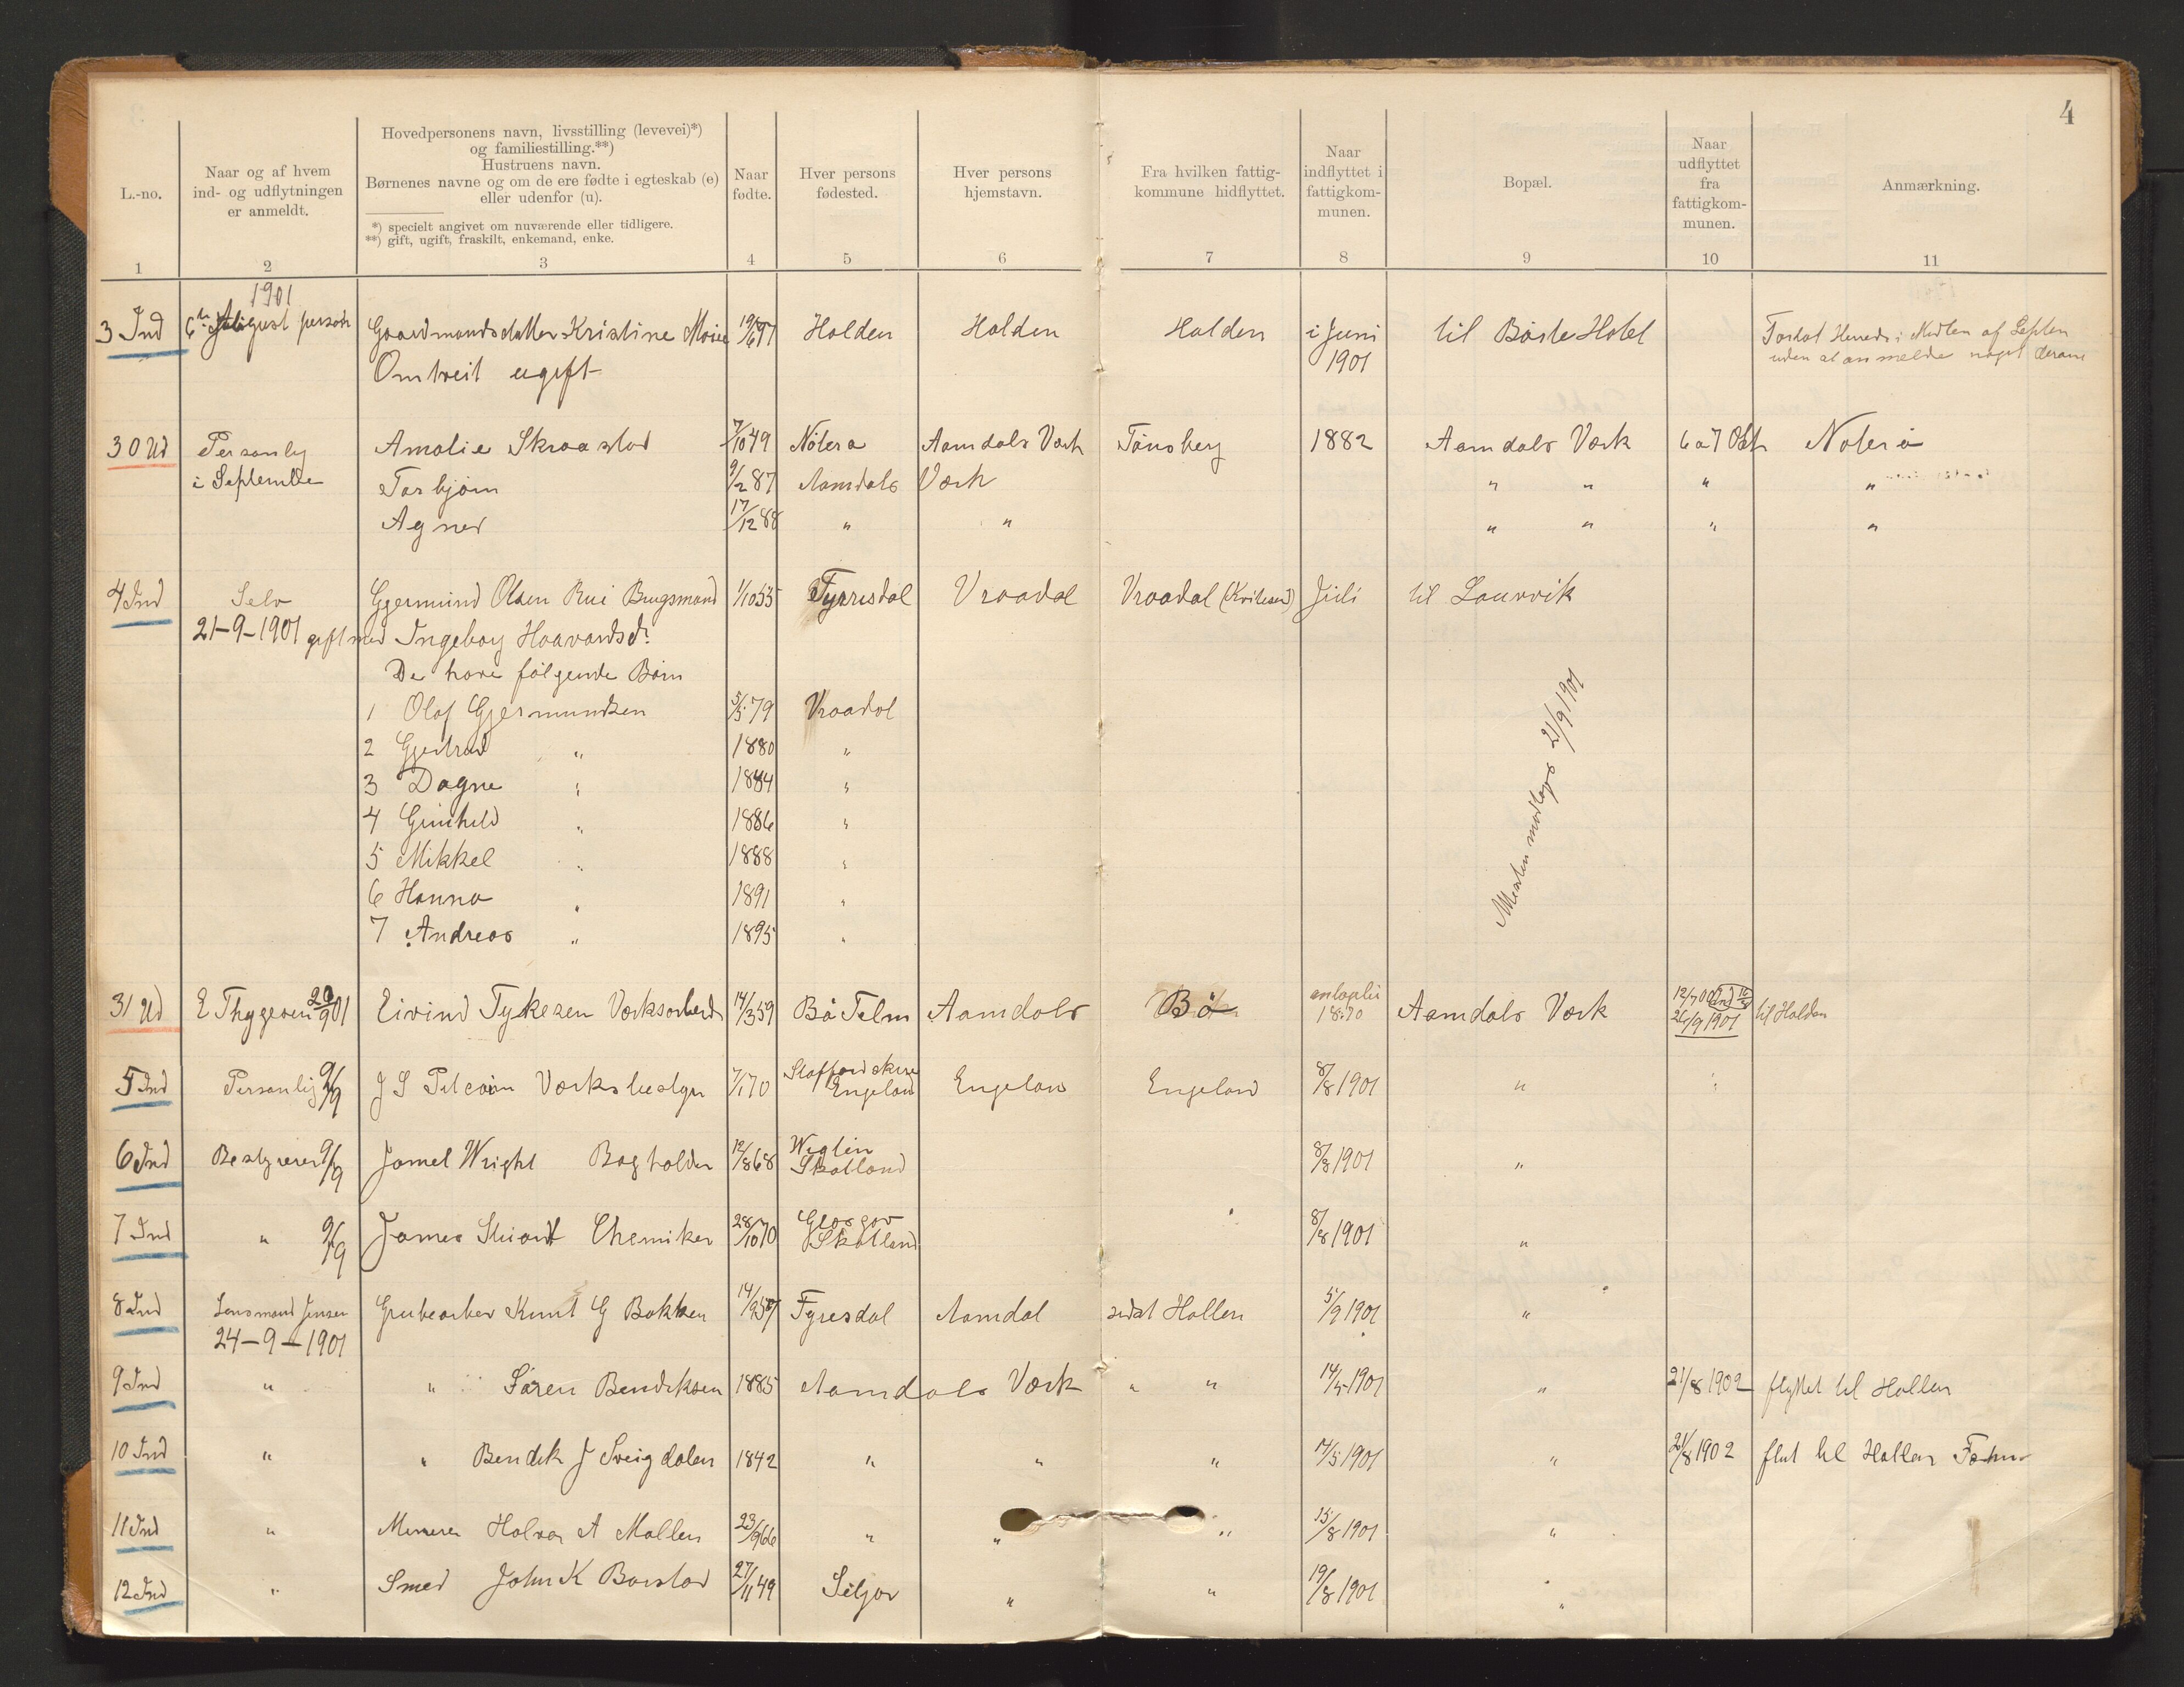 4
L.-no.
Naar og af hvem
ind- og udflytningen
er anmeldt.
Hovedpersonens navn, livsstilling (levevei)*)
og familiestilling.**)
Hustruens navn.
Børnenes navne og om de ere fødte i egteskab (e)
eller udenfor (u).
*) specielt angivet om nuværende eller tidligere.
**) gift, ugift, fraskilt, enkemand, enke.
Naar
fødte.
Hver persons
fødested.
Hver persons
hjemstavn.
Fra hvilken fattig-
kommune hidflyttet.
Naar
indflyttet i
fattigkom-
munen.
Bopæl.
Naar
udflyttet
fra
fattigkom-
munen.
Anmærkning.
1 2 3 4 5 6 7 8 9 10 11
1901
3 Ind August Gaardmandsdatter Kristine Holden Holden Holden i Juni til Hotel
1901 uden at anmelde noget derom
Omtveit ugift
30 Ud Personlig Amalie 7/10 49 Nøterø Aamdals Værk Tønsberg 1882 Aamdals Værk 6 a 7 Nøterø
i September Torbjørn 9/2 87 Aamdals Værk " " " "
Agnes 17/12 88 " " " " " "
4 Ind Selv Gjermund Olsen Rui Brugsmand 1/10 55 Fyrresdal Vraadal Vraadal Juli til Laurvik
21-9-1901 gift med Ingeborg Haavardsd.
De have følgende Børn
1 Olaf Gjermundsen 5/5 79 Vraadal
2 " 1880 "
3 Dagne " 1884 "
4 Gunhild " 1886 "
5 Mikkel " 1888 "
6 Hanna " 1891 "
7 Andreas " 1895 "
21/9 1901
31 Ud E Thygesen 01 Eivind Tykesen 14/3 59 Bø Telm Aamdals Bø 1870 Aamdals Værk 26/9 1901 til Holden
5 Ind Personlig 9/9 J S Pitcairn 7/1 70 Staffordskire
England England England 8/8 1901 " "
6 Ind Bestyreren 9/9 James Wright Bogholder 12/8 68 Skotland 8/8 1901 "
7 Ind " 9/9 James Chemiker 28/10 70 Skotland 8/8 1901 "
8 Ind Lensmand Jensen Knut G Bakken 14/9 Fyresdal Aamdal sidst Hollen 5/9 1901 "
24-9-1901
9 Ind " " Søren Bendiksen 1885 Aamdals Værk " " 14/5 1901 " 21/8 1902 flyttet til Hollen
10 Ind " " Bendik J 1842 " " " 14/5 1901 " 21/8 1902 til Hollen
11 Ind " Minerer Halvor A 23/9 66 " " " 15/8 1901 "
12 Ind " Smed John K 27/11 49 Seljor " " 19/8 1901 "